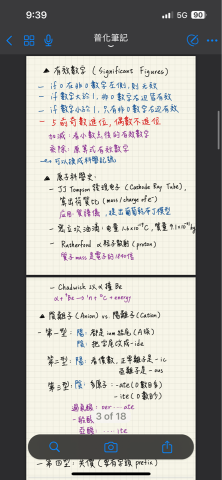 9:39
5G 90
普化筆記
▲ 有效數字 (Significant Figures)
- if 0 在非0數字左側，則無效
- if 數字大於1，非0數字右迴皆有效
- if 數字小於1，只有非0數字右迴有效
- 5前奇數進位，偶數不進位
加減：看小數點後的有效數字
乘除：原算式有效數字
可以換成科學記號
▲ 原子科學史：
- JJ Tompson 發現電子 (Cathode Ray Tube),
算出荷質比 (mass/charge of e⁻)
應用：質譜儀，提出葡萄乾布丁模型
- 密立坎油滴：電量 1.6×10⁻¹⁹C, 質量 9.1×10⁻³¹ kg
- Rutherford α粒子散射 (proton)
質子mass是電子的1840倍
- Chadwick 以α撞Be
α + ⁹Be → ¹n + ¹²C + energy
▲ 陰離子 (Anion) vs. 陽離子 (Cation)
- 第一型：陽：都是 ium 結尾 (A族)
陰：把字尾改成 -ide
第二型：陽：看價數，正常離子 - ic
亞離子是 - ous
第三型：陰：多原子：-ate (O數多)
- ite (O數少)
過氧酸：per ... ate
一般酸
亞酸：... ite
3 of 18
- 第四型：共價 (要有字頭 prefix)